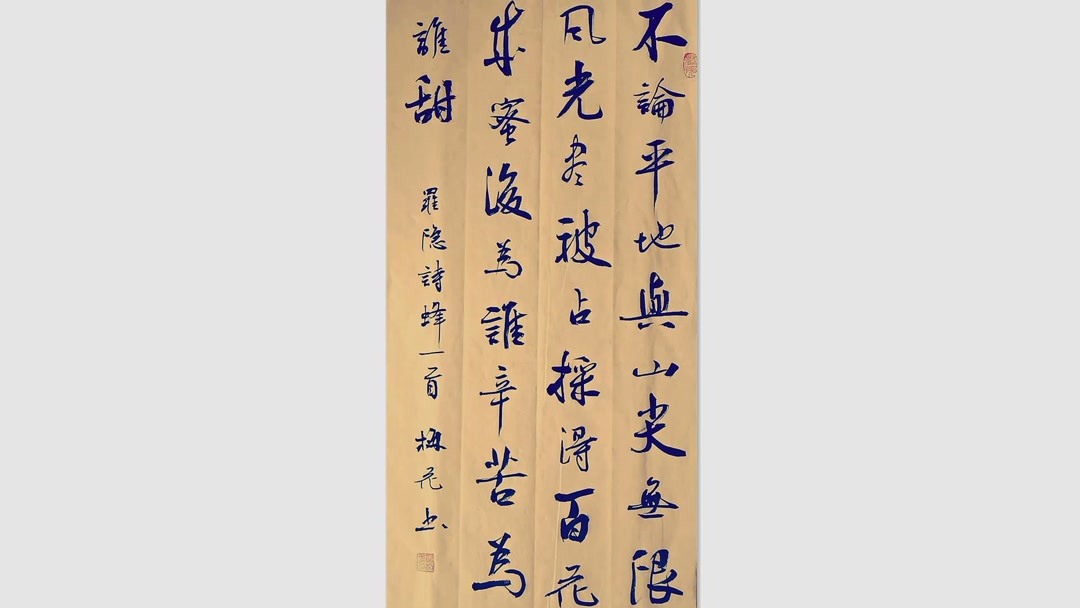 不論平地與山尖無限
風光盡被占採得百花
成蜜後為誰辛苦為
誰甜
羅隐詩蜂一首 梅花书